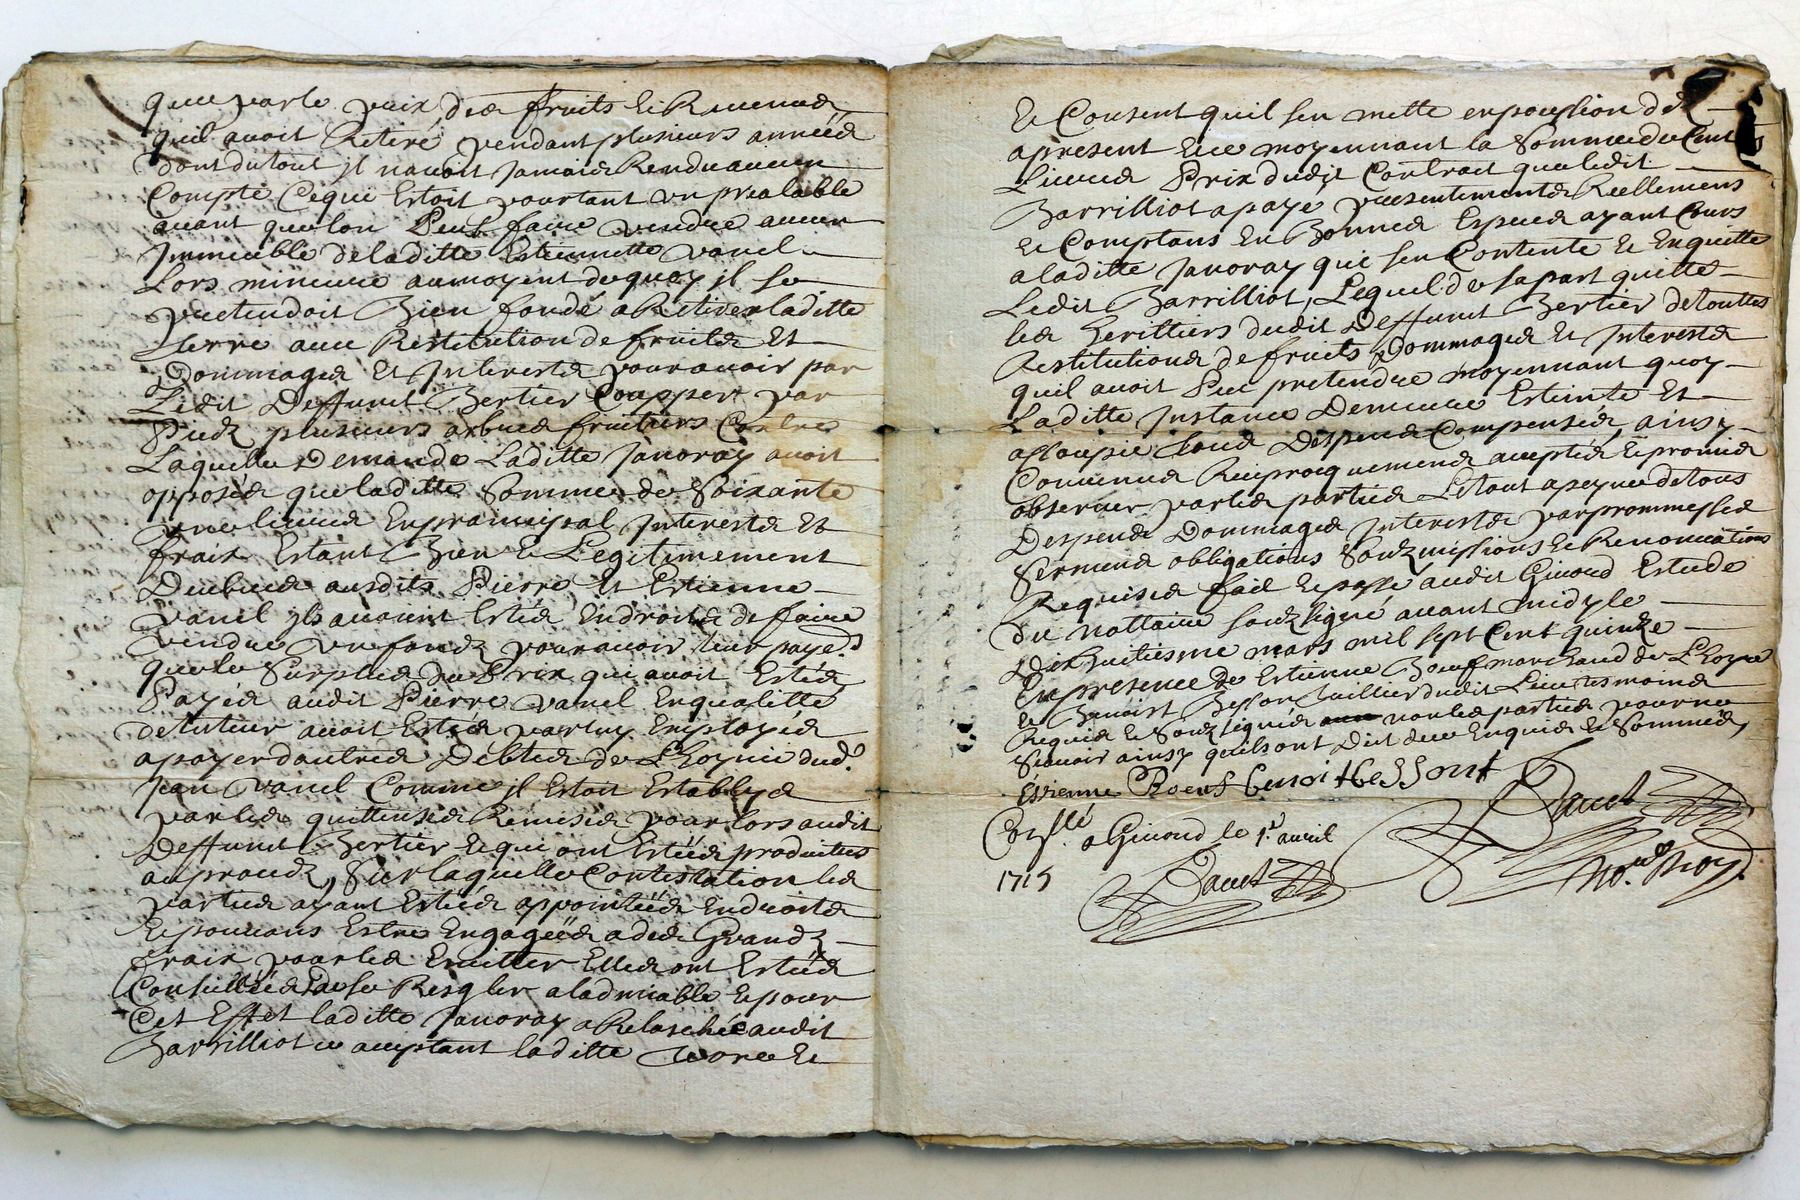 que par le prix des fruits & Revenus
quil avoit Retiré pendant plusieurs années
dont du tout jl navoit Jamais Rendu aucun
Compte Cequi Estoit pourtant un prealable
avant que lon Peut faire vendre aucun
Jmmeuble deladitte Estiennette vanel
Lors mineure aumoyent dequoy jl se
pretendoit Bien fondé a Retirer laditte
terre avec Restitution de fruits Et
Dommages Et Jnterests pour avoir par
Ledit Deffunt Bertier Coupper par
Pied plusieurs arbres fruitiers Contre
Laquelle Demande Laditte Janoray avoit
opposée que laditte Somme de Soixante
une livres En principal Jnterests Et
frais Estant Bien & Legitimement
Deubues ausdits Pierre Et Estienne
vanel jls avoient Estés En droits de faire
vendre un fondz pour avoir leur paye.t
que le Surplus du Prix qui avoit Estés
Payés audit Pierre vanel En qualitté
de tuteur avoit Estés par luy Employés
apayer dautres Debtes de L'hoyrie dud.t
Jean vanel Comme jl Estoit Establys
par les quittances Remises pour lors audit
Deffunt Bertier & qui ont Estéés produittes
au procedz, Sur laquelle Contestation les
parties ayant Estéés appointéés En droits
& pouvans Estre Engagéés a des Grandz
frais pour les Eviter Elles ont Estéés
Conseilléés de se Resgler a ladmiable & pour
Cet Effet laditte Janoray a Relaschée audit
Barrilliot ce acceptant laditte terre &
& Consent quil sen mette en possession des
apresent & ce moyennant la Somme de Cent
Livres Prix dudit Contrat que ledit
Barrilliot a payé presentements Reellement
& Comptans En Bonnes Especes ayant Cours
a laditte Janoray qui sen Contente & En quitte
Ledit Barrilliot, Lequel de sa part quitte
les heritiers dudit Deffunt Bertier de touttes
Restitutions de fruits Dommages Et Jnterests
quil avoit Peu pretendre moyennant quoy
Laditte Jnstance Demeure Esteinte Et
assoupie tous Despens Compensés, ainsy
Convenus Reciprocquements acceptés & promis
observer par les parties Letout a peyne de tous
Despens Dommages Jnterests par prommesses
Serments obligations Soubzmissions & Renonciations
Requises fait & passé audit Givord Estude
du nottaire Soubzsigné avant midy le
dix huitiesme mars mil sept Cent quinze
En presence de Estienne Boeuf marchand de L'hopre
& Benoist Besson taillier dudit Lieu tesmoins
Requis & Soubz signés non les parties pour ne
Scavoir ainsy quils ont Dict de ce Enquis & Sommés,
Estienne Boeuf benoit bessont
Con.llé a Givord le 1.r avril
1715